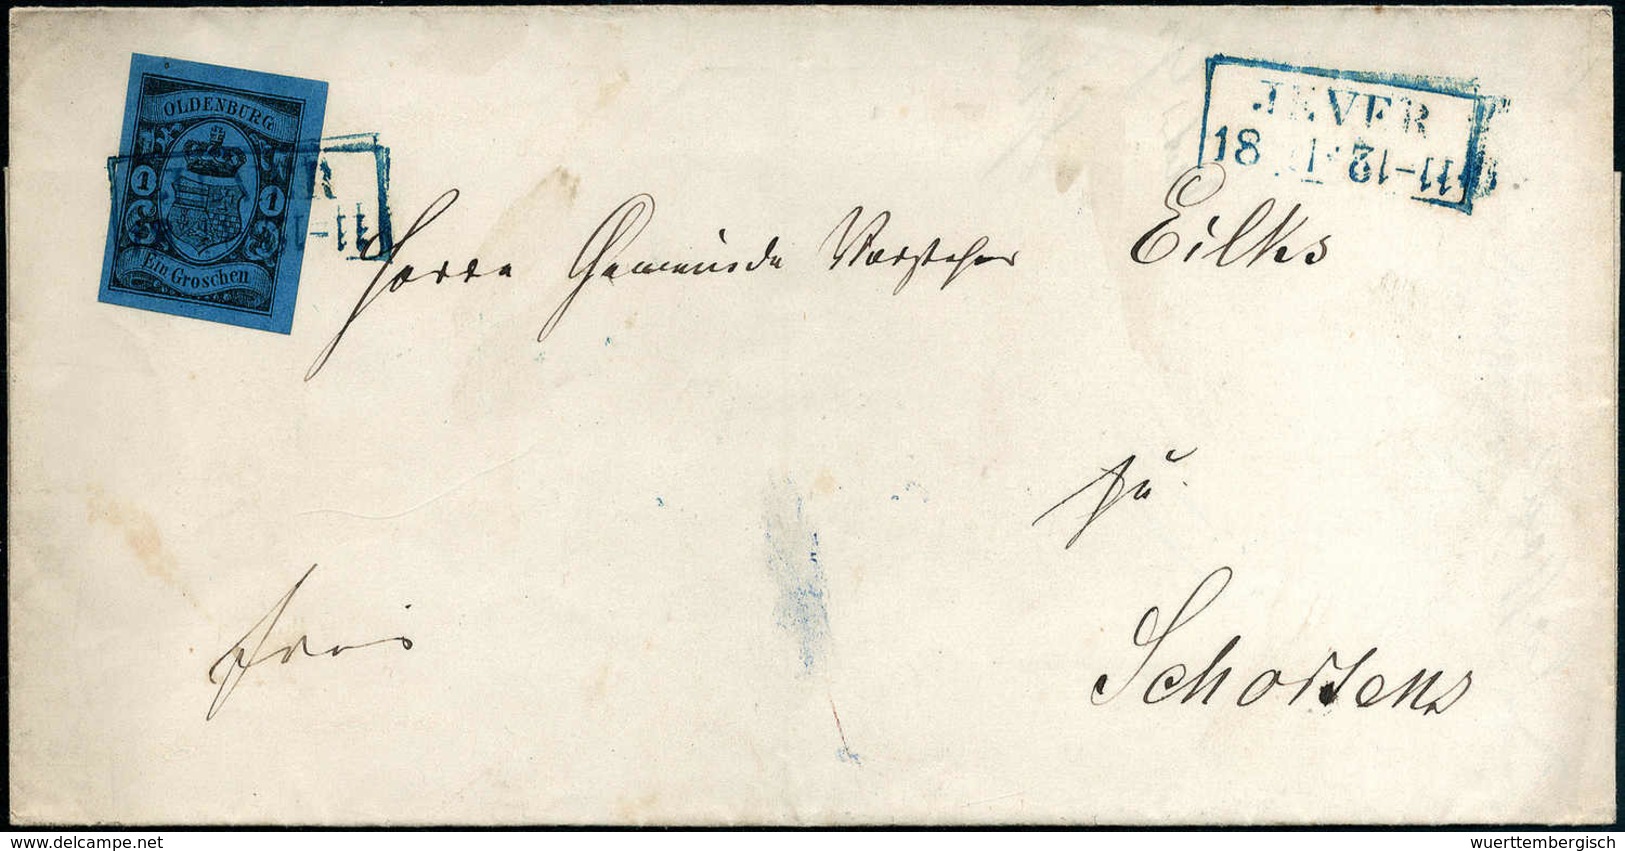 OLDENBURG
1 1
Ein Groschen
R
JEVER
18
Herrn Gemeinde Vorsteher Eilks
zu
Schortens
frei
wuerttembergisch